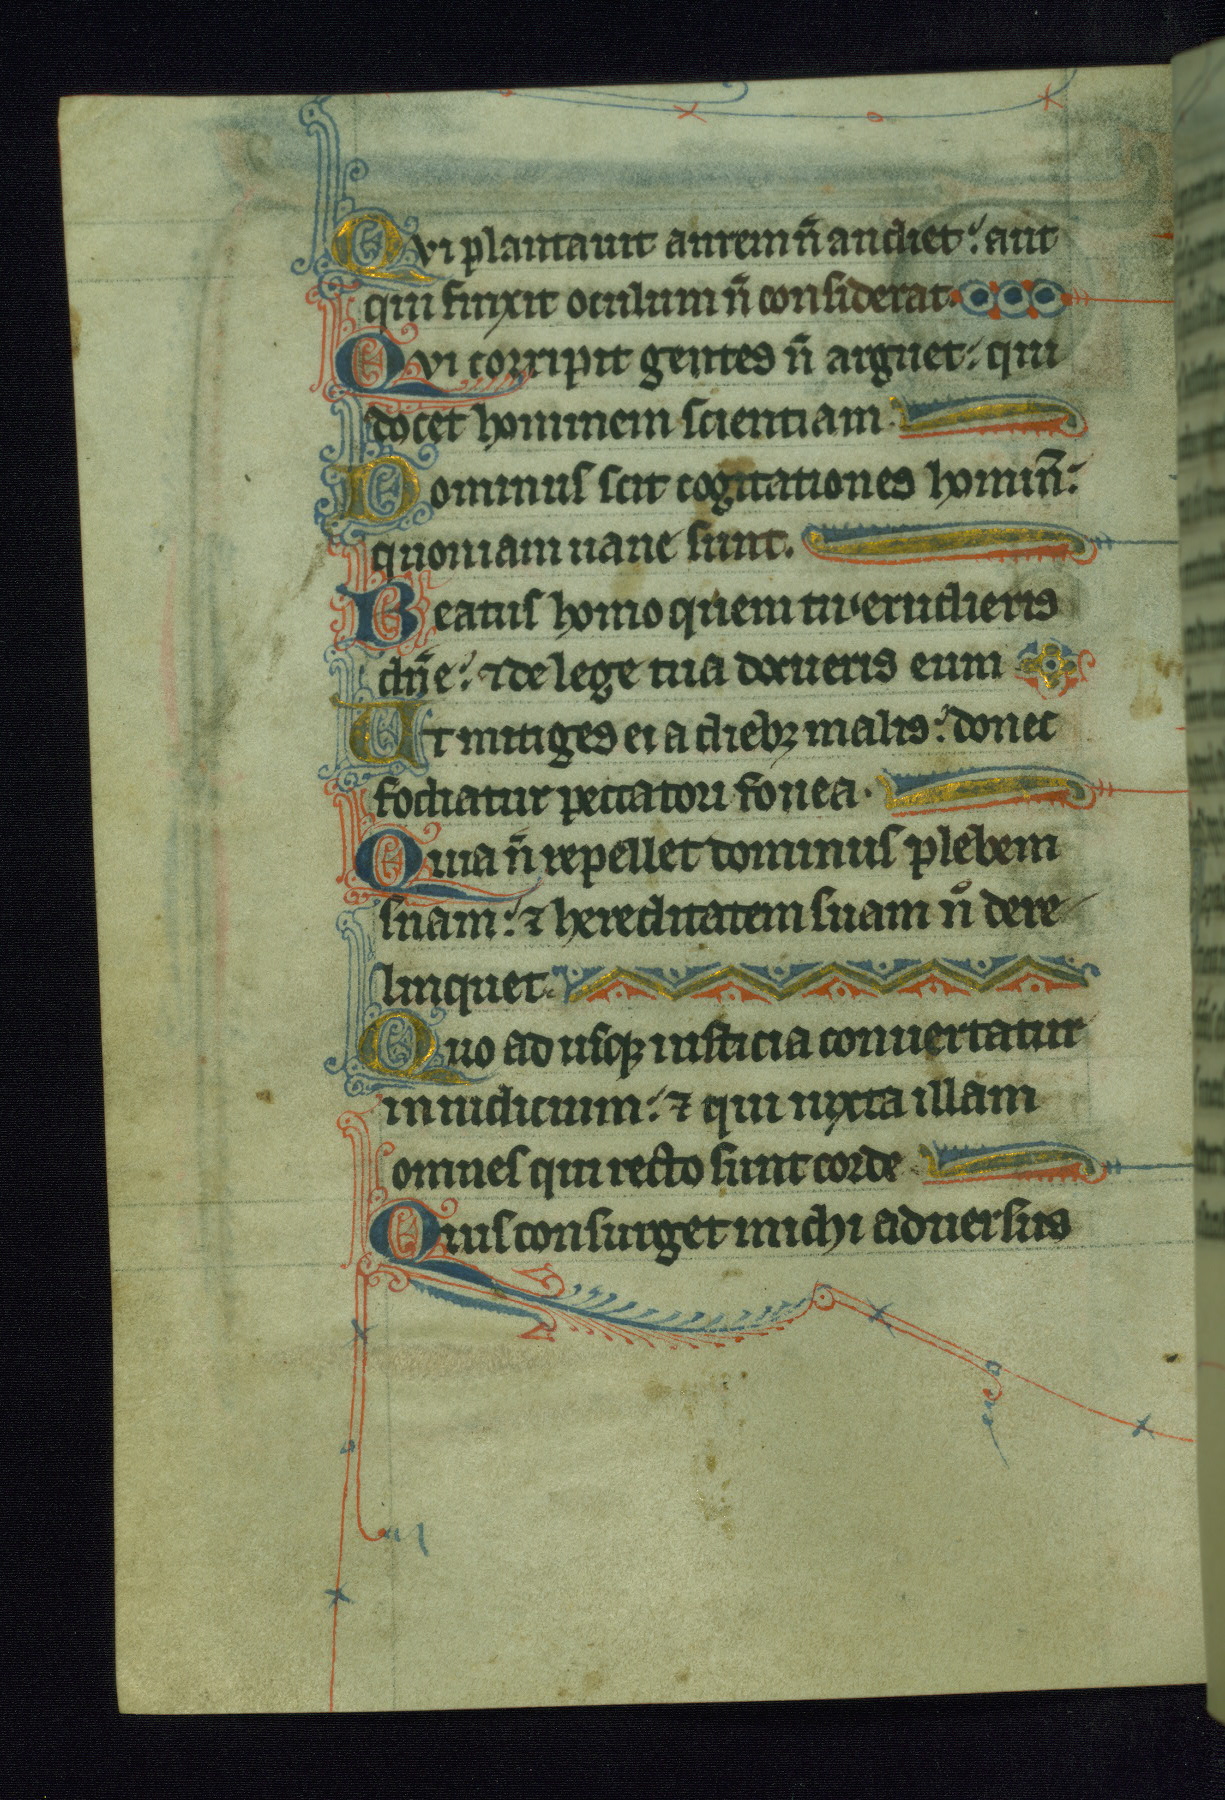 Qvi plantauit aurem n̄ audiet: aut
qui finxit oculum n̄ considerat.
Qvi corripit gentes n̄ arguet: qui
docet hominem scientiam.
Dominus scit cogitationes homin̄:
quoniam uane sunt.
Beatus homo quem tu erudieris
dn̄e: ⁊ de lege tua docueris eum
Ut mitiges ei a diebꝫ malis: donec
fodiatur peccatori fouea.
Quia n̄ repellet dominus plebem
suam: ⁊ hereditatem suam n̄ dere
linquet.
Quo ad usqꝫ iusticia conuertatur
in iudicium: ⁊ qui iuxta illam
omnes qui recto sunt corde
Quis consurget michi aduersus